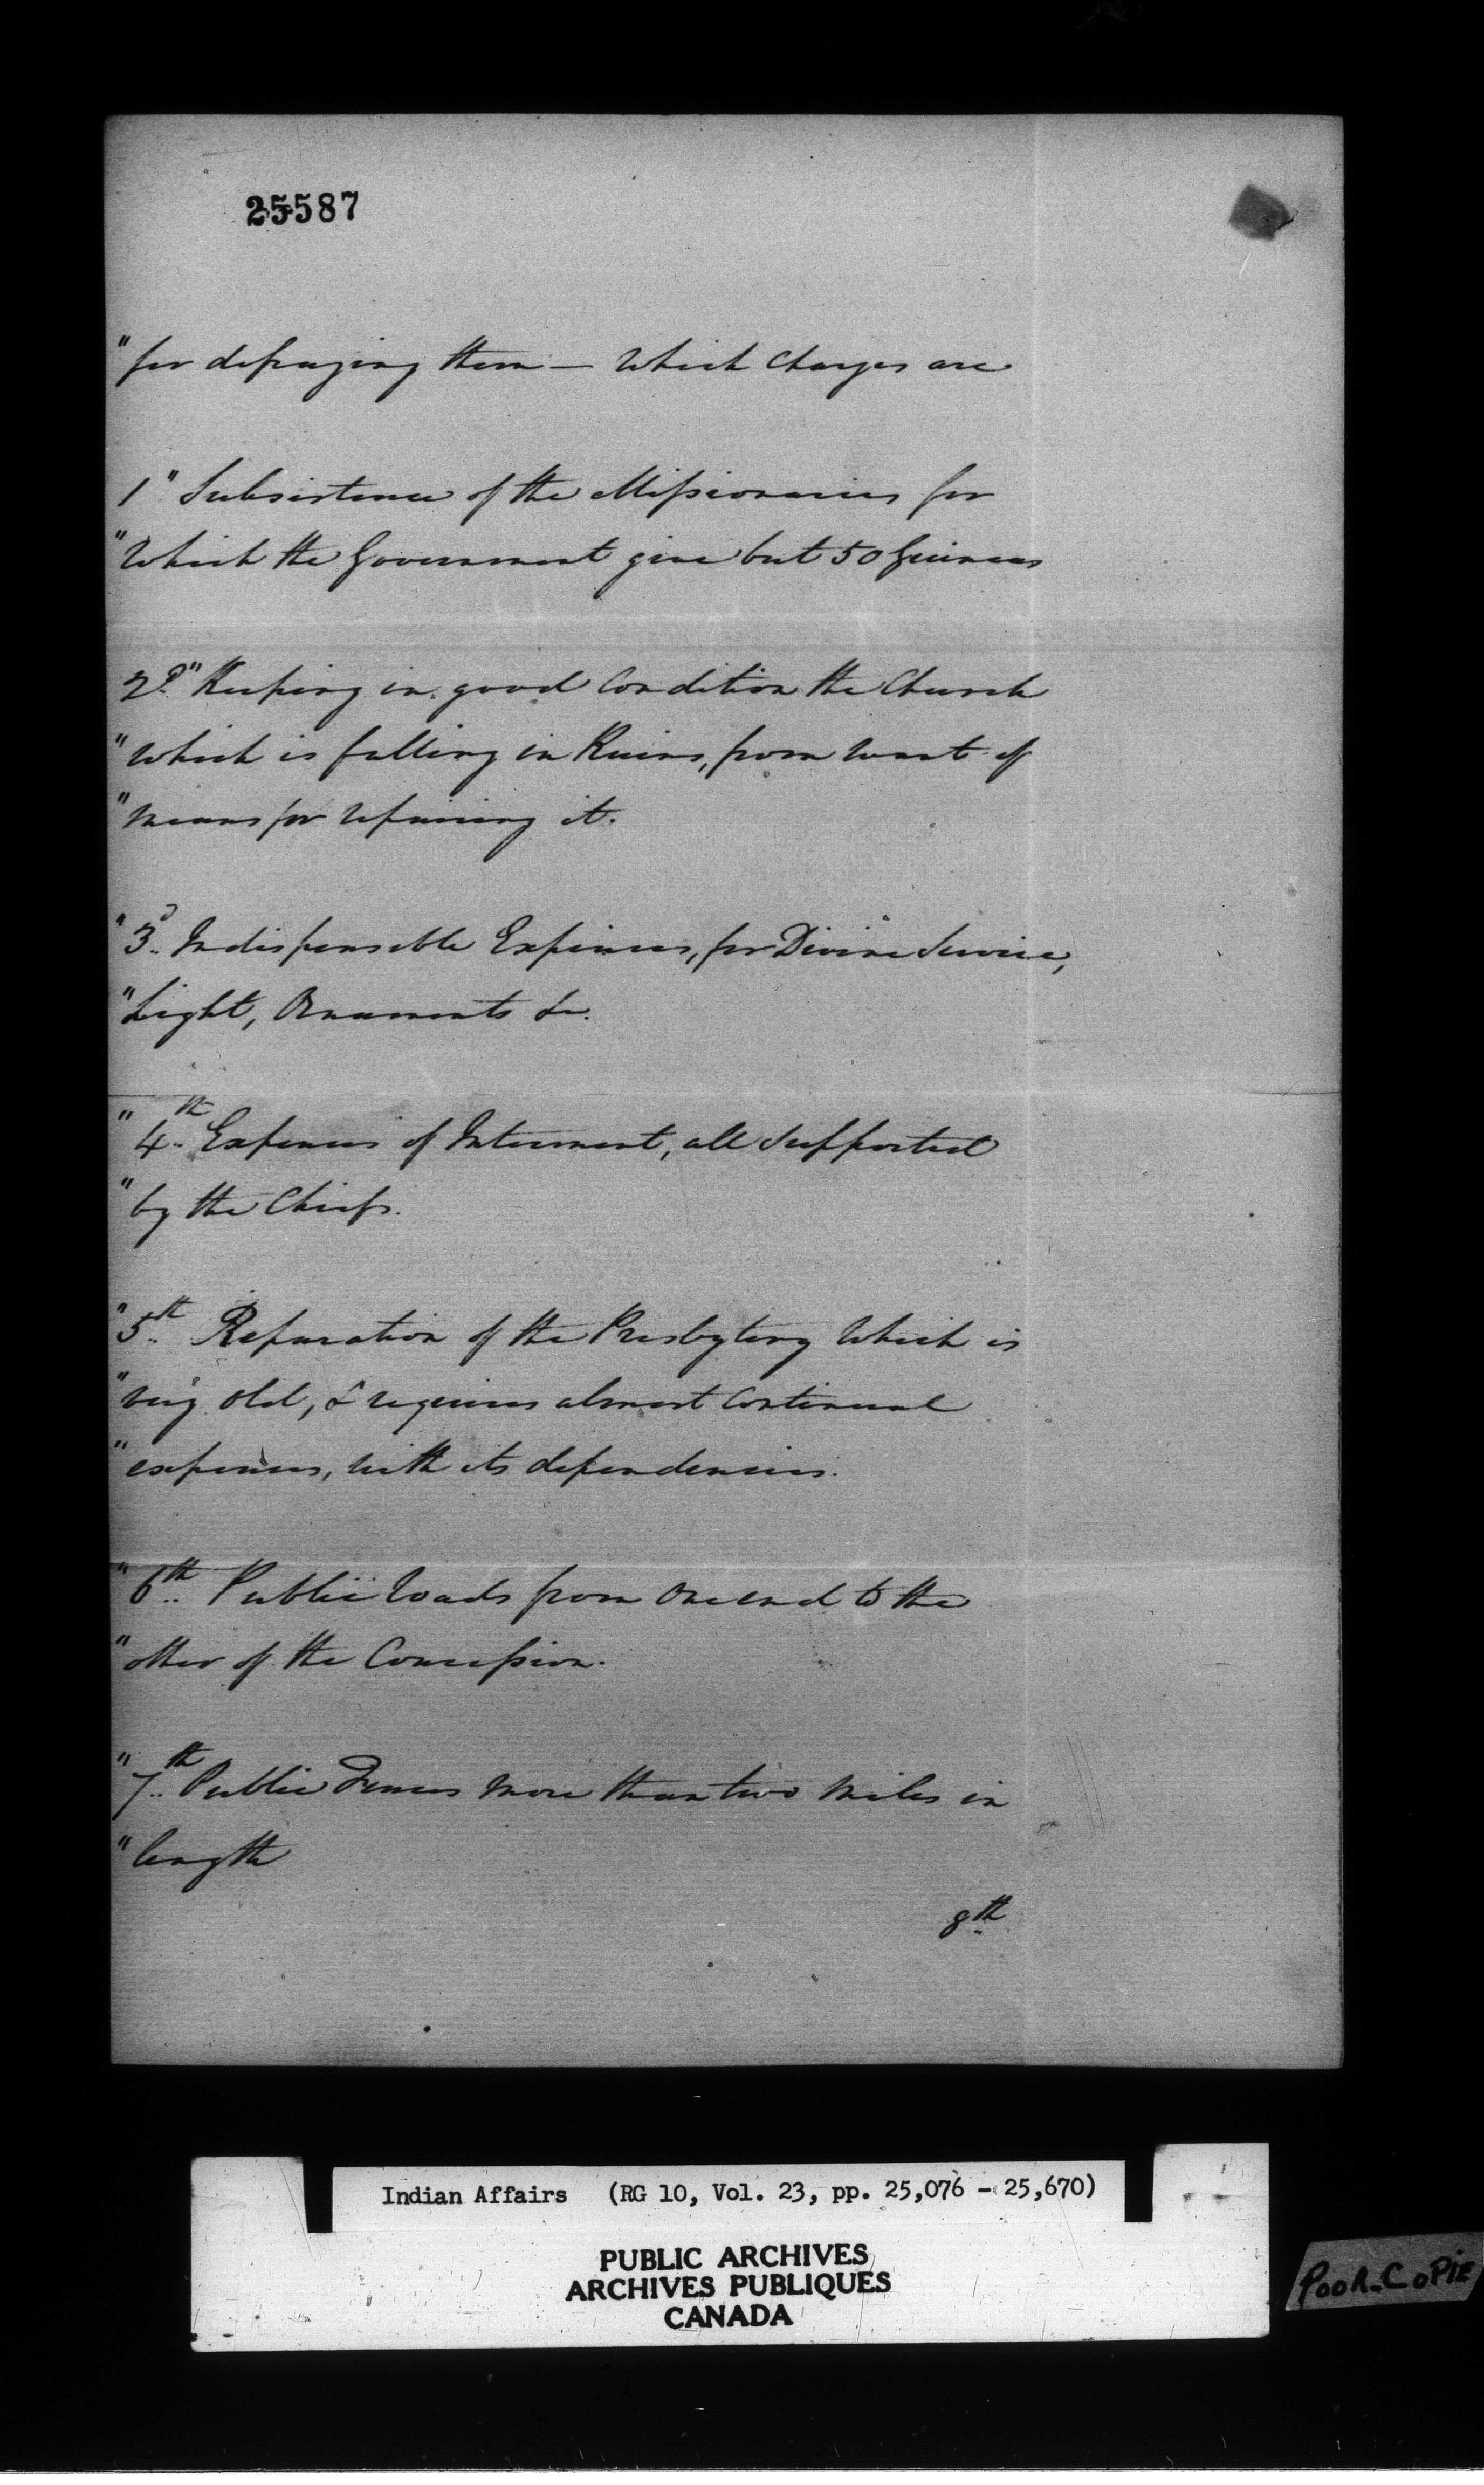 25587
"for defraying them — Which Charges are
1" Subsistence of the Missionaries for
"Which the Government give but 50 Guineas
2d." Keeping in good Condition the Church
"which is falling in Ruins, from want of
"means for repairing it.
"3d.. Indispensible Expences, for Divine Service,
"Light, Ornaments &c.
"4th.. Expences of Interment, all Supported
"by the Chiefs.
"5th.. Reparation of the Presbytery Which is
"very old, & requires almost Continual
"expences, with its dependencies.
"6th.. Public Roads from One end to the
"other of the Concession.
"7th.. Public Fences more than two Miles in
"length
8th
Indian Affairs (RG 10, Vol. 23, pp. 25,076 - 25,670)
PUBLIC ARCHIVES
ARCHIVES PUBLIQUES
CANADA
POOR-COPIE